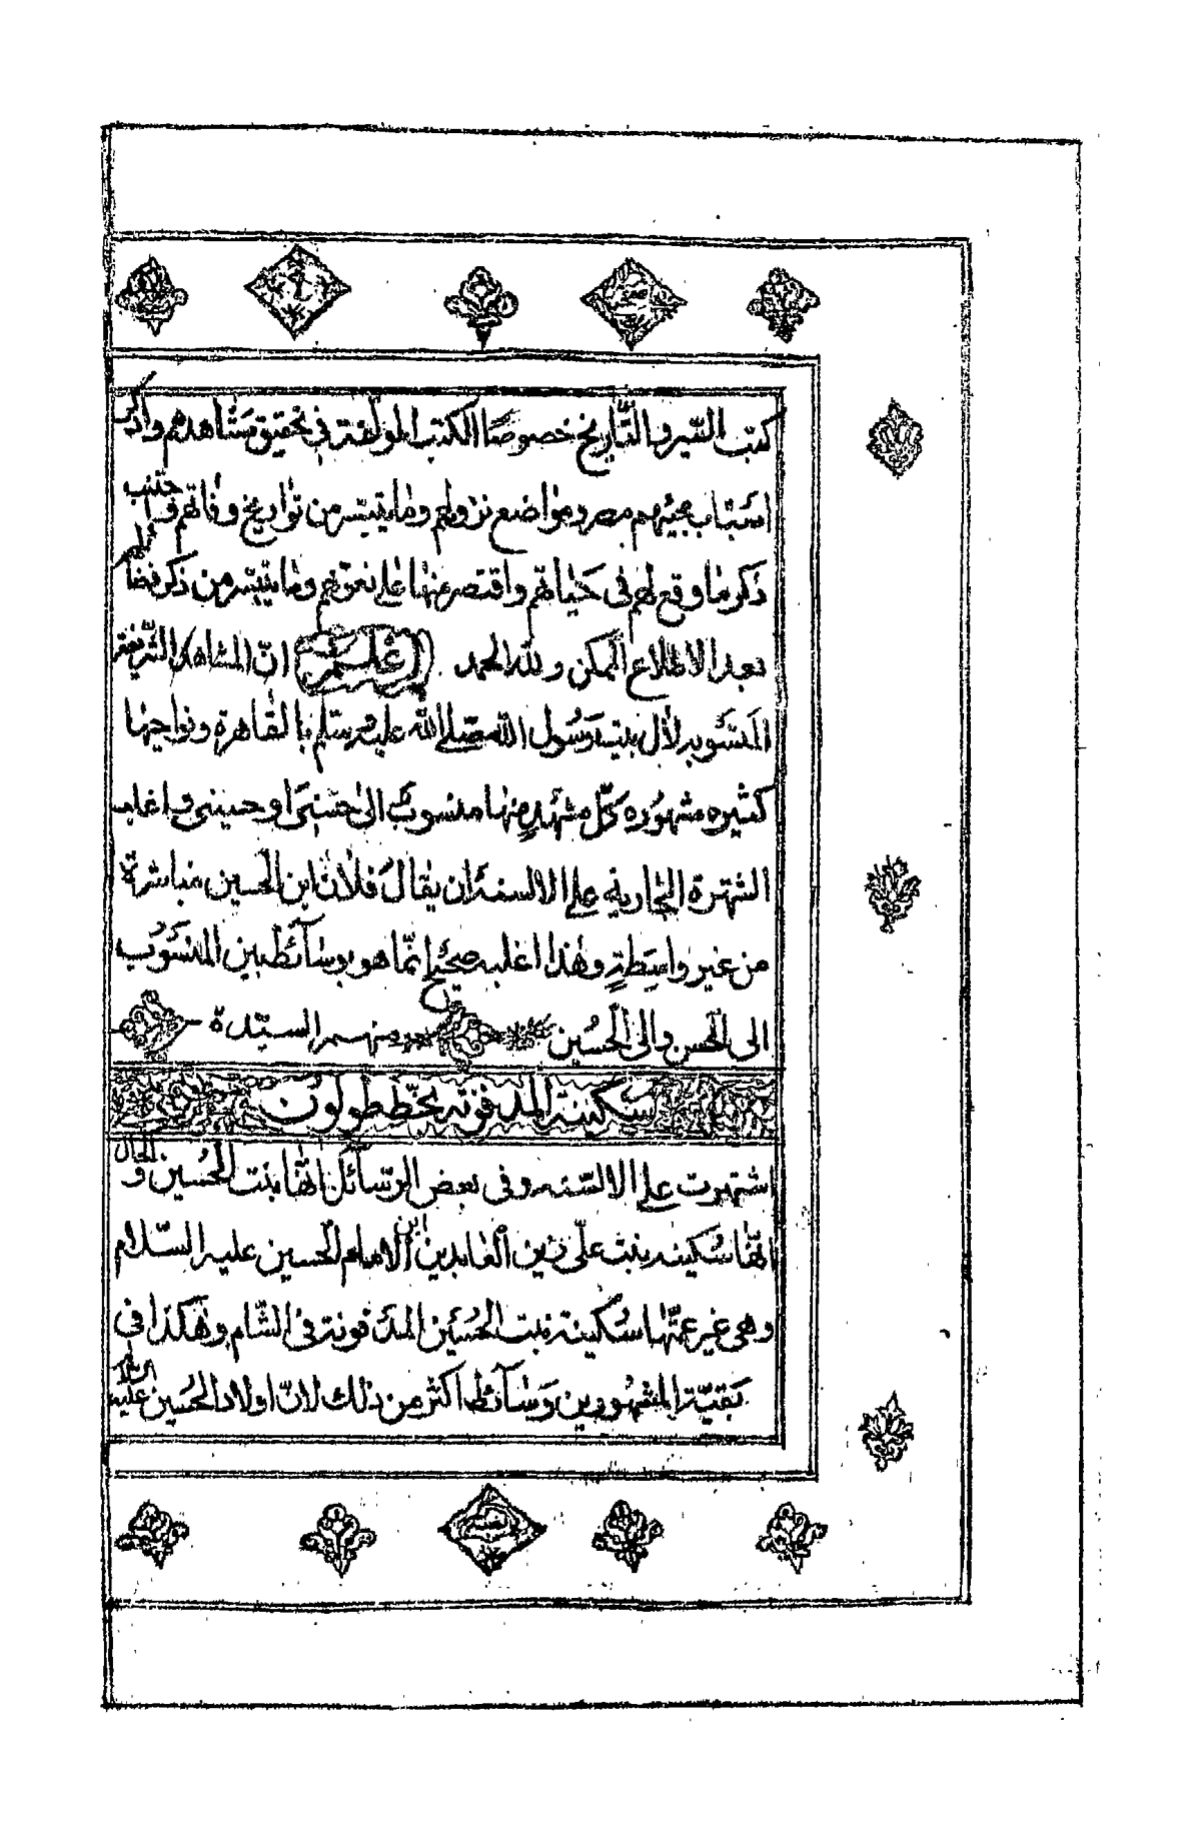 كتب السّير والتّأريخ خصوصًا الكتب المولفة في تحقيق مشاهدهم واذكر
اسباب مجيئهم بمصر ومواضع نزولهم وما يتيسر من تواريخ وفاتهم واجتنب
ذكر ما وقع لهم فى حياتهم واقتصر منها على نعوتهم وما يتيسر من ذكر فضائلهم
بعد الاطلاع الممكن ولله الحمد اعلم انّ المشاهد الشّريفة
المنسوبه لآل بيت رسول الله صلى الله عليه وسلم بالقاهرة ونواحيها
كثيره مشهوره كلّ مشهد منها منسوب الى حسنى او حسينى واغلب
الشهرة الجاريه على الالسنه ان يقال فلان ابن الحسين مباشرة
من غير واسطةٍ وهذا اغلبه صحيح انّما هو بوسآئط بين المنسوب
الى الحسن والى الحسين ومنهم السيّدة
سكينة المدفونه بخطّ طولون
اشتهرت على الالسنه وفى بعض الرّسآئل انّها بنت الحسين والحال
انّها سكينه بنت علىّ زين العابدين ابن الامام الحسين عليه السّلام
وهى غير عمّتها سكينة بنت الحسين المدفونة فى الشّام وهكذا في
بقيّة المشهورين وسآئط اكثر من ذلك لانّ اولاد الحسين عليه السلام